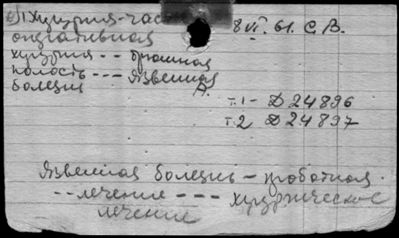 1 Хирургия-час 8 VI. 61. С.В.
оперативная
хирургия -- брюшная
полость --- язвенная
болезнь А.
т.1- Д 24896
т.2 Д 24897
Язвенная болезнь -
-- лечение --- хирургическое
лечение